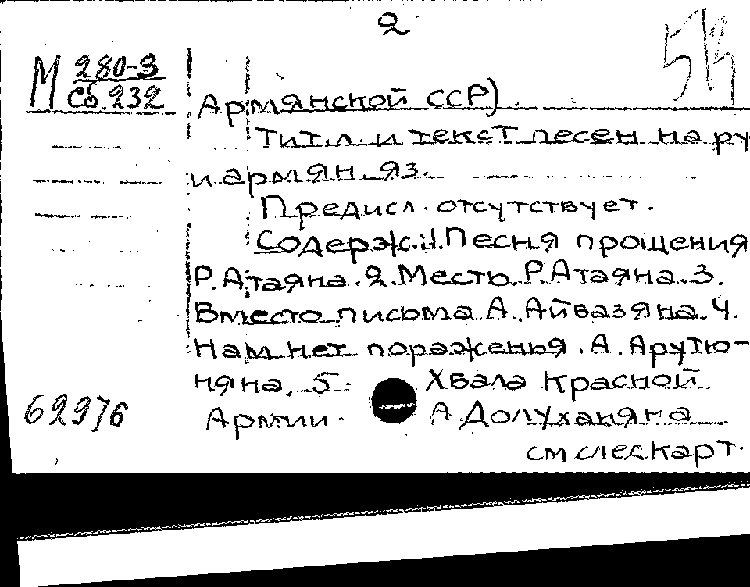 2
М 280-3
Сб. 232
Армянской ССР)
Тит. л. и текст песен на ру
и армян. яз.
Предисл. отсутствует.
Содерж.: 1. Песня прощения
Р. Атаяна. 2. Месть. Р. Атаяна. 3.
Вместо письма А. Айвазяна. 4.
Нам нет пораженья. А. Арутю-
няна. 5. Хвала Красной
Армии. А. Долуханяна
см след карт.
62976